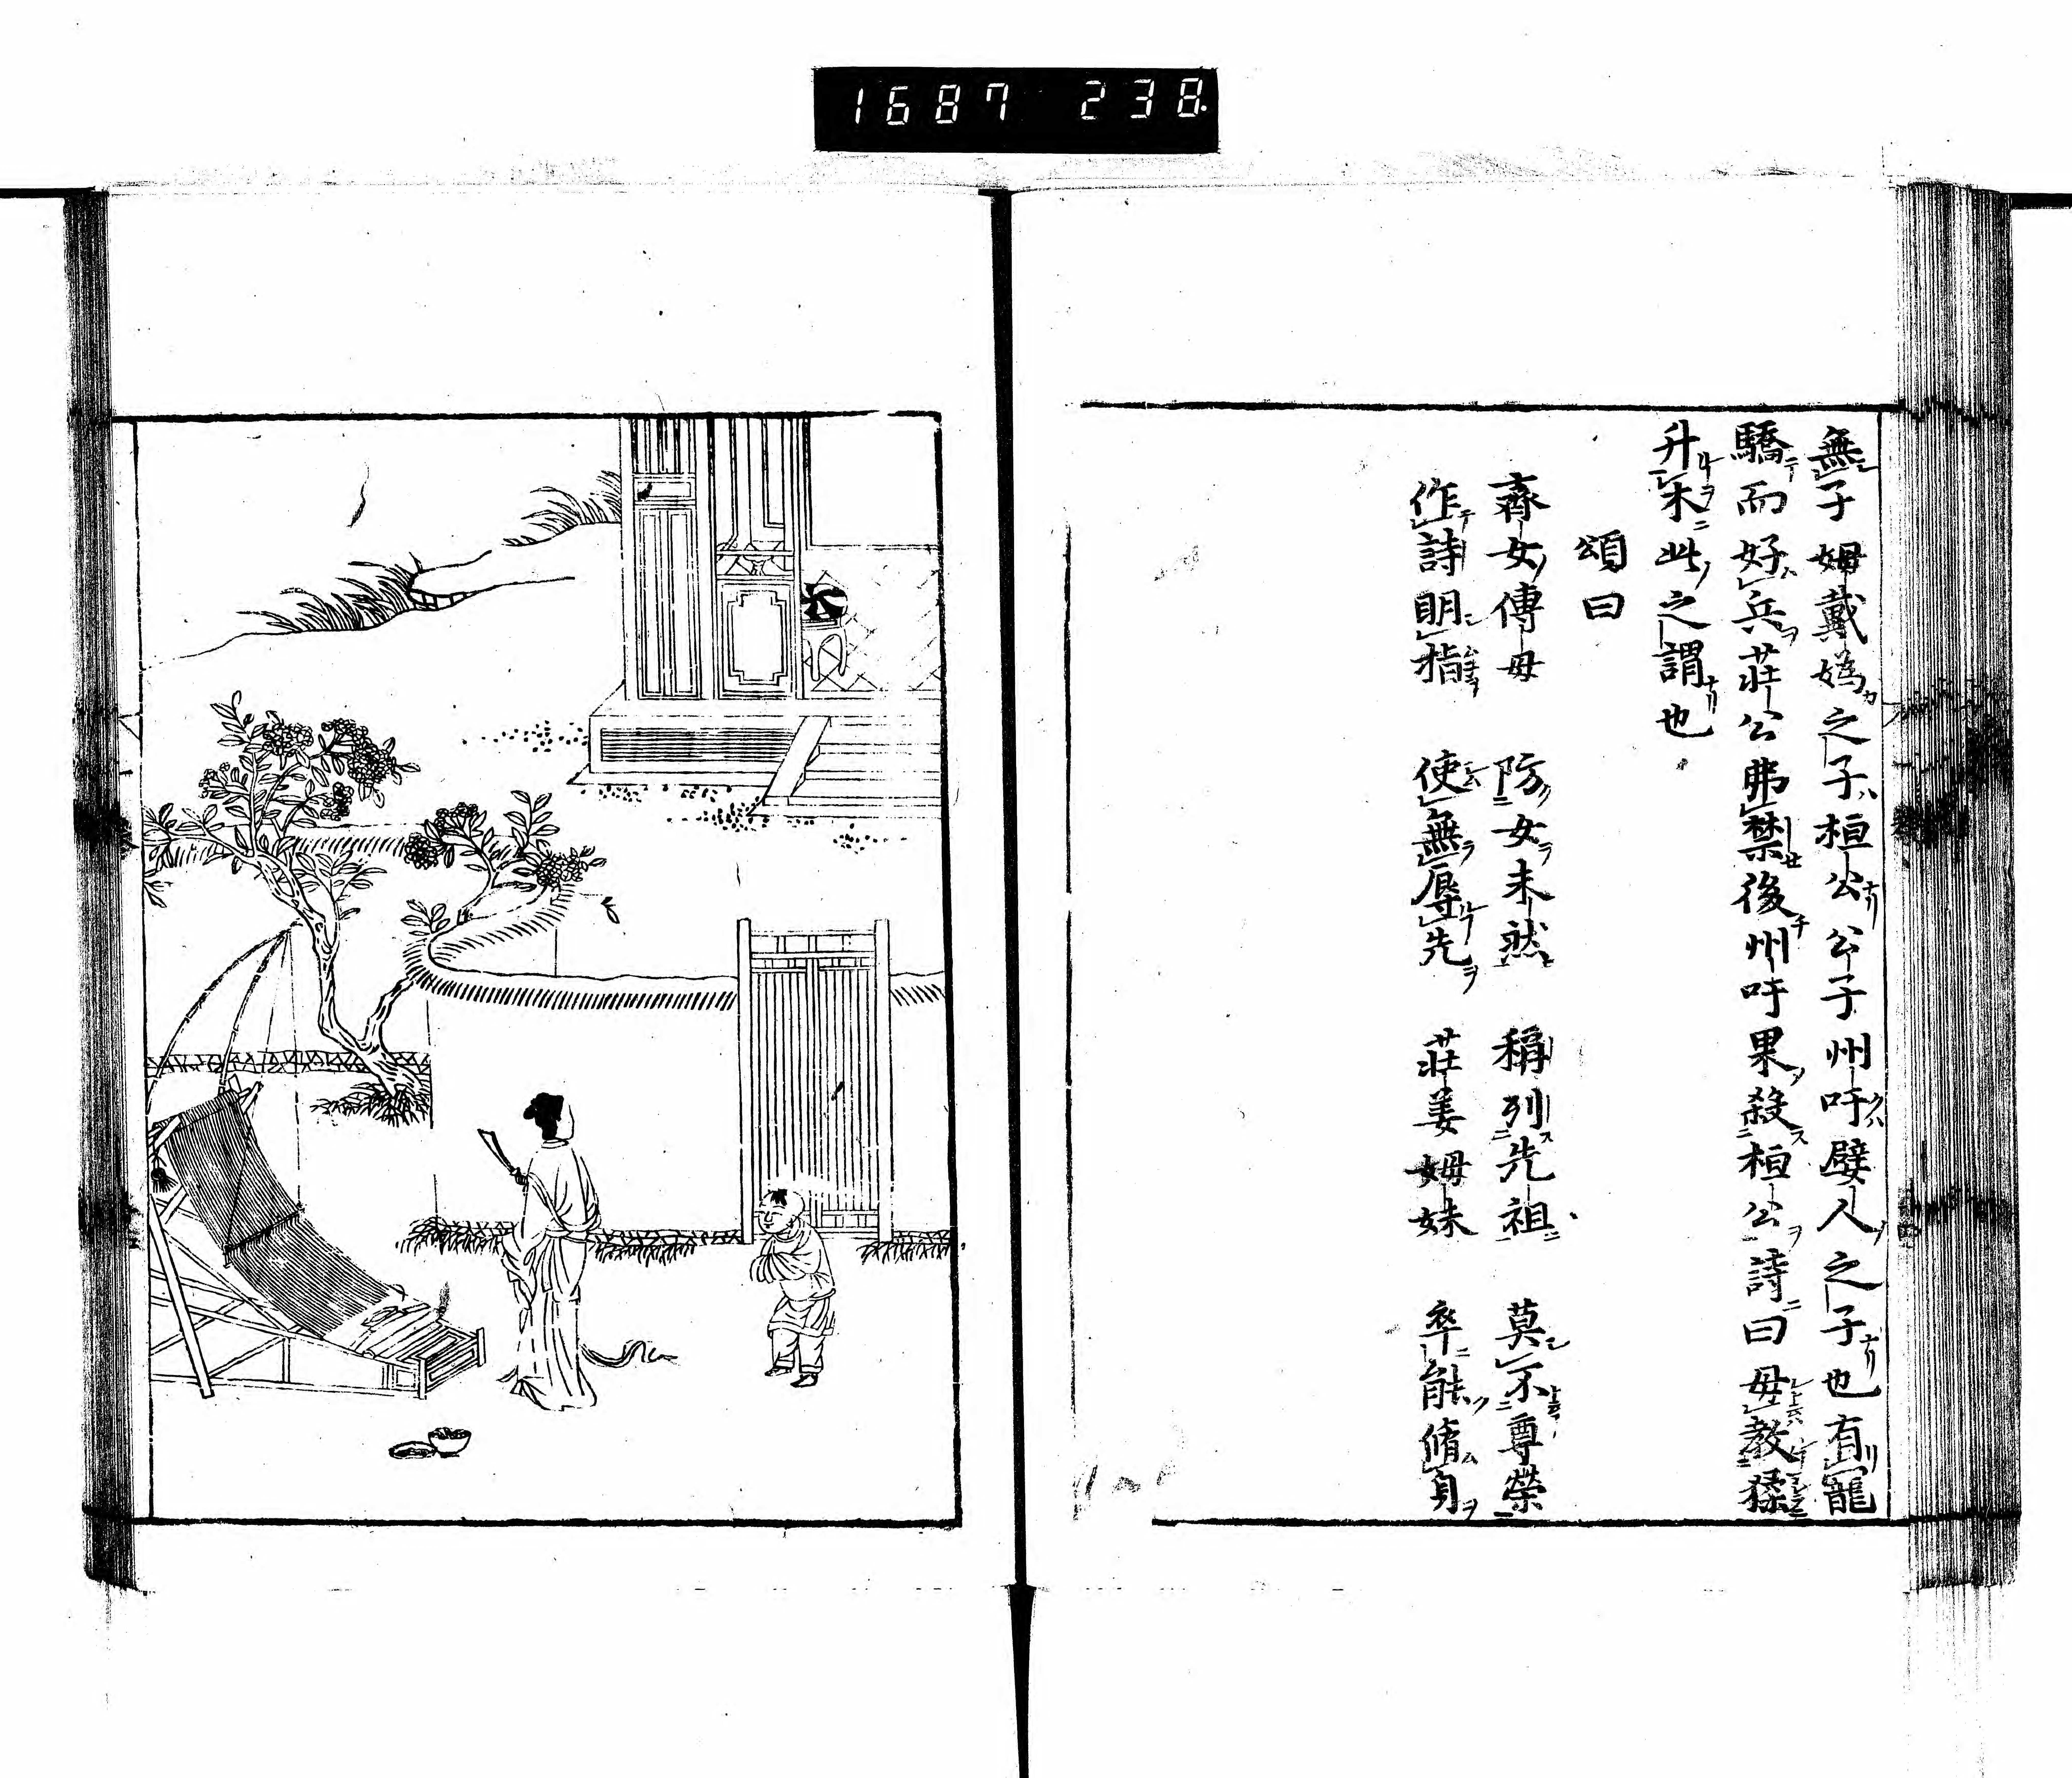 1687 238
無子姆戴嬀之子桓公公子州吁嬖人之子也有寵
驕而好兵莊公弗禁後州吁果殺桓公詩曰毋教猱
升木此之謂也
頌曰
齊女傅母 防女未然 稱列先祖 莫不尊榮
作詩明指 使無辱先 莊姜姆妹 卒能脩身